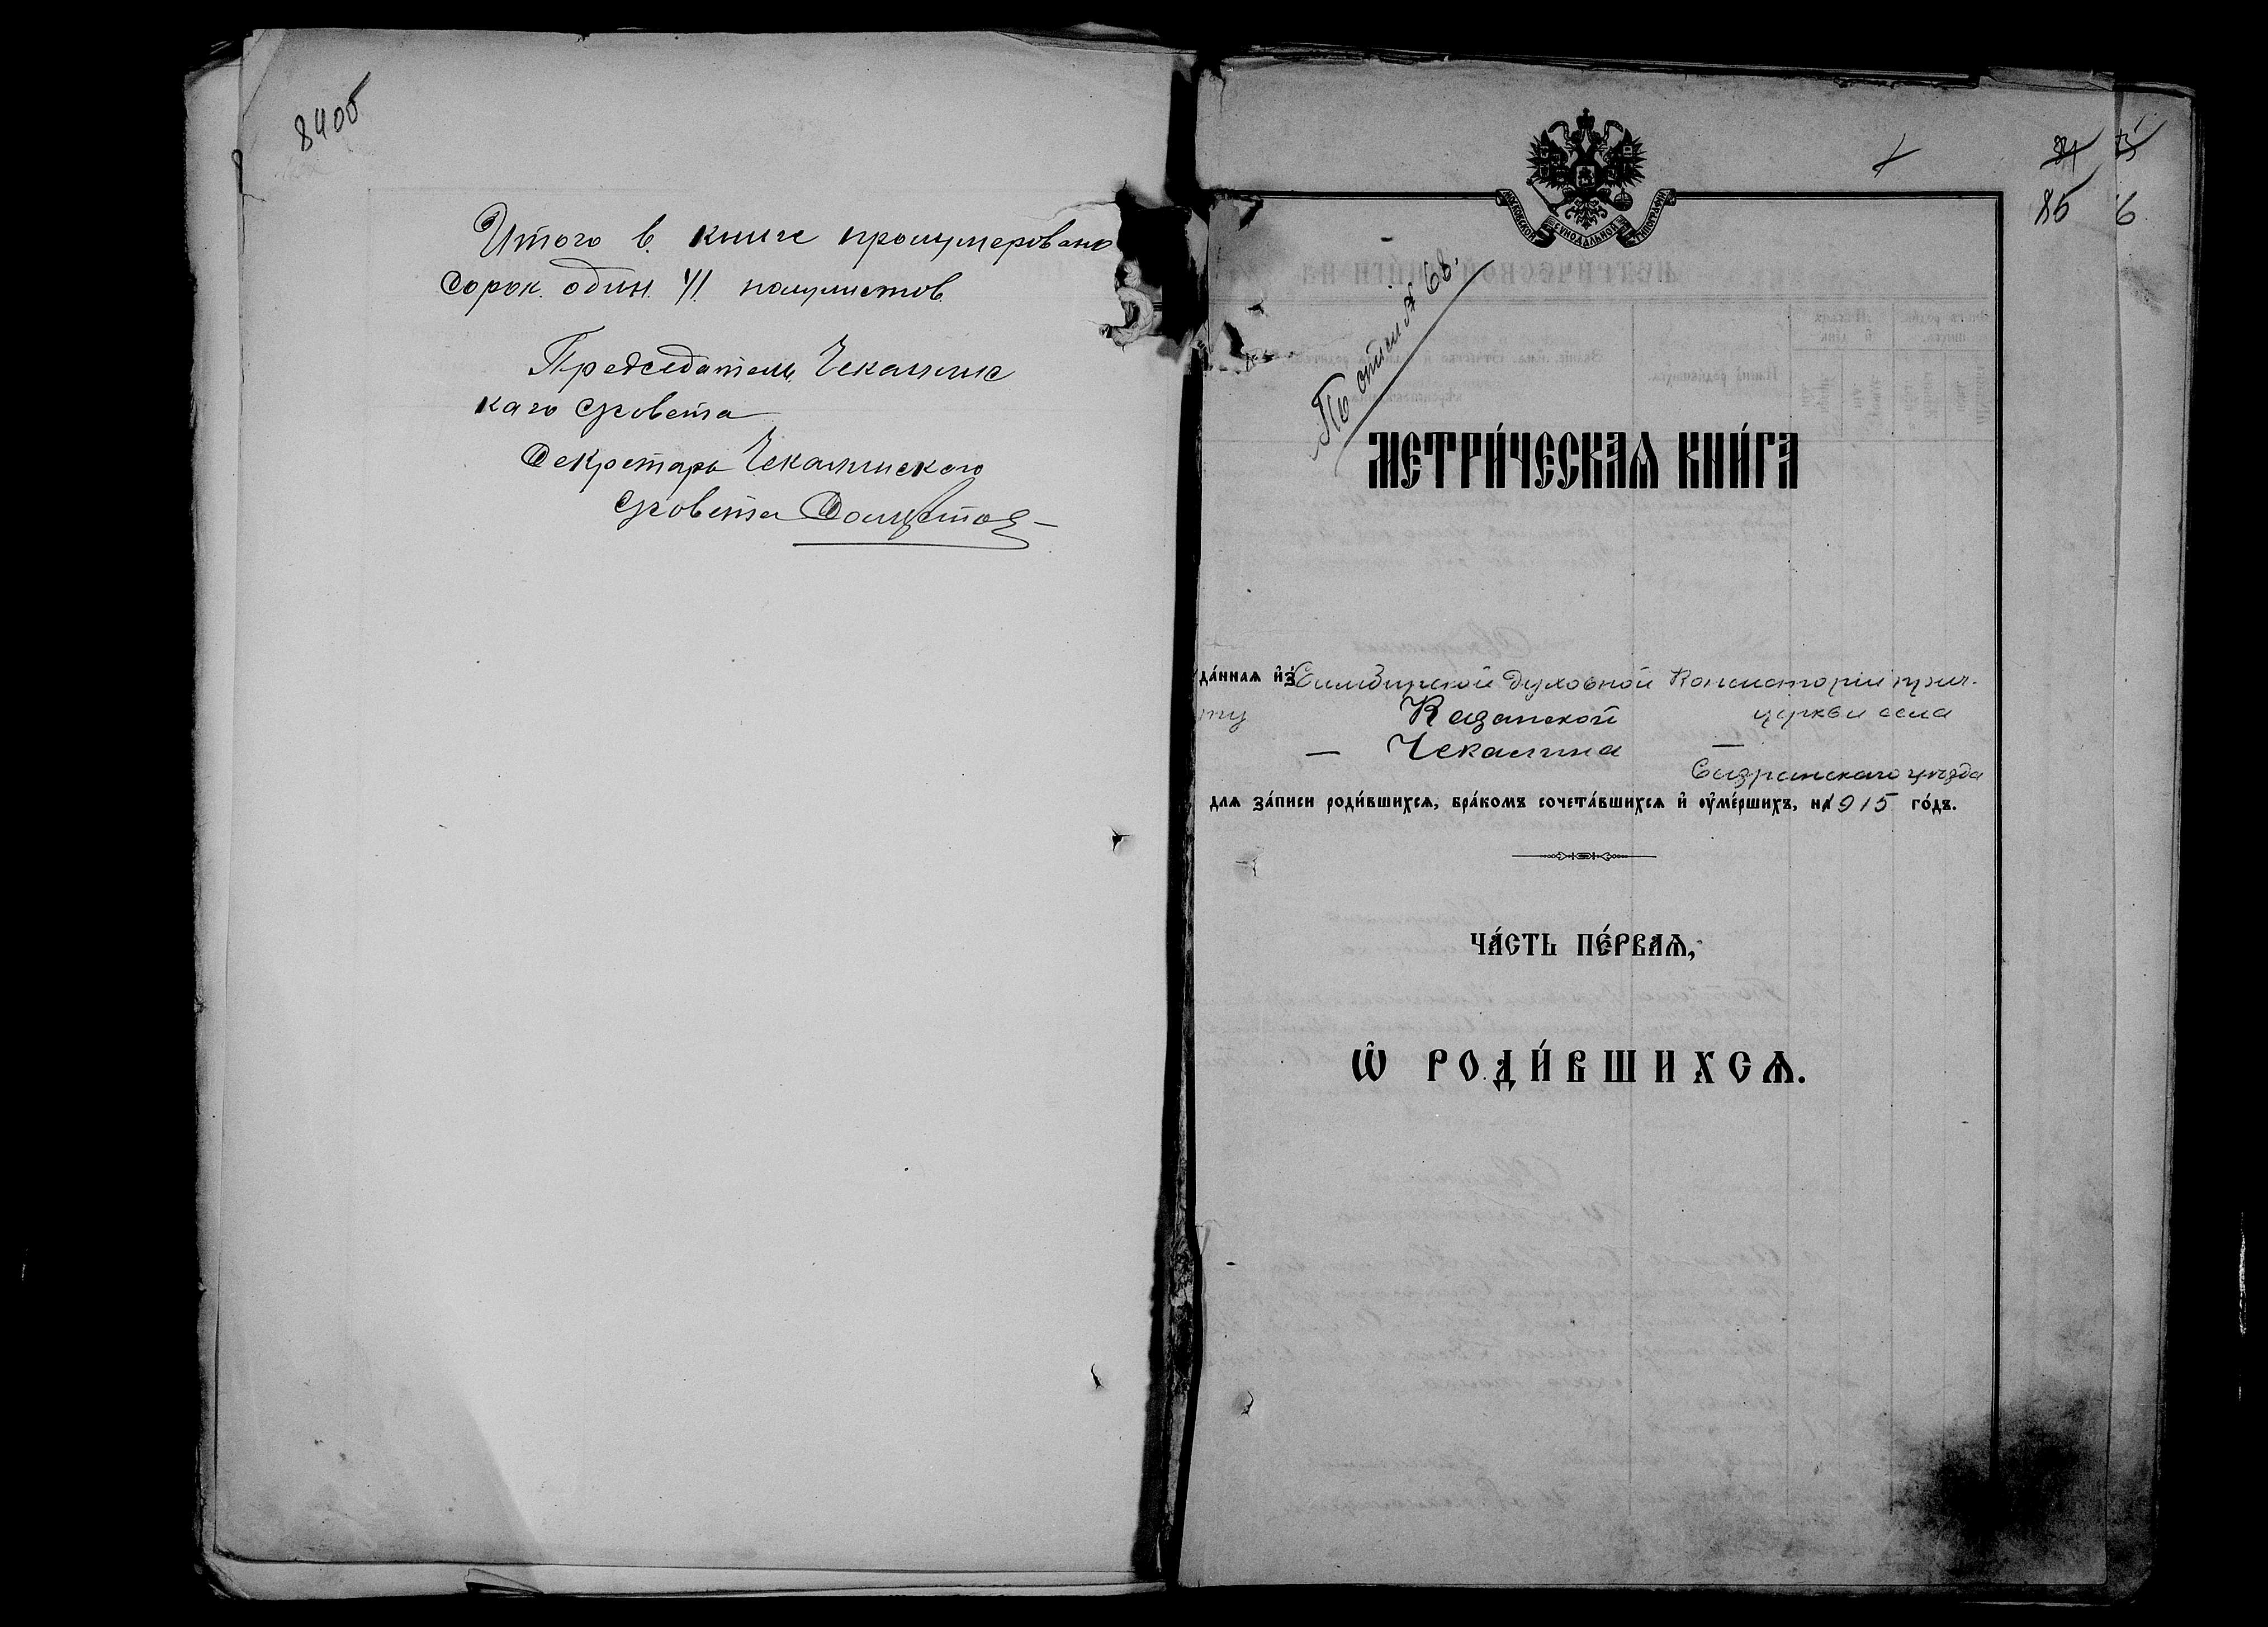 84об
Итого в книге пронумеровано
Сорок один 41 полулистов
Председатель Чекалинс
каго с/совета
Секретарь Чекалинского
с/совета
МОСКОВСКОЙ СѴНОДАЛЬНОЙ ТИПОГРАФІИ
85 6
По описи № 68.
МЕТРИ́ЧЕСКАѦ КНИ́ГА
да́ннаѧ и҆з̾ Симбирской Духовной Консисторіи прич-
ту Казанской церкви села
— Чекалина —
Сызранскаго уѣзда
для за́писи роди́вшихсѧ, бра́комъ сочета́вшихсѧ и҆ ᲂу҆ме́ршихъ, на 1915 го́дъ.
ЧА́СТЬ ПЕ́РВАѦ,
Ѽ РОДИ́ВШИХСѦ.